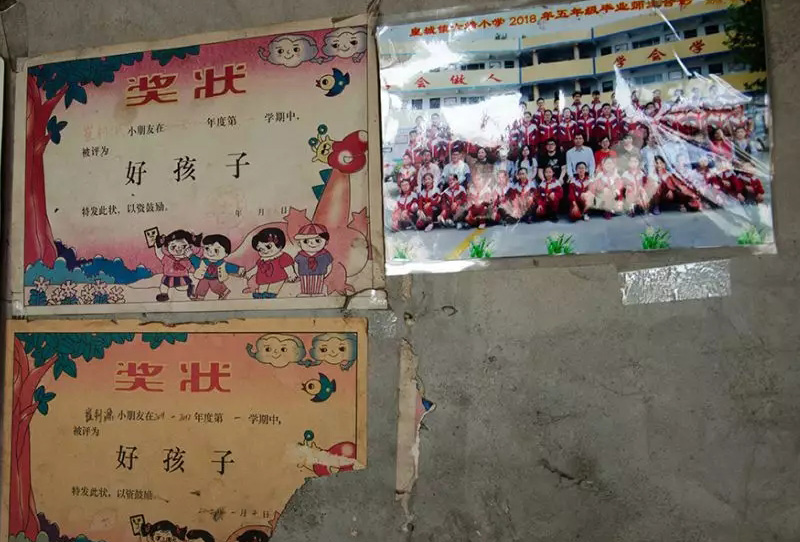 奖 状
小朋友在 年度第一学期中,
被评为
好 孩 子
特发此状，以资鼓励。
年 月 日
皇城镇 小学 2018 年五年级毕业师生合影
会 做 人 学 会 学
奖 状
小朋友在 年度第一学期中,
被评为
好 孩 子
特发此状，以资鼓励